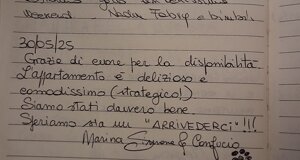 weekend. Nadia Fabry e bimbi
30/05/25
Grazie di cuore per la disponibilità
L'appartamento è delizioso e
comodissimo (strategico!)
Siamo stati davvero bene.
Speriamo sia un "ARRIVEDERCI"!!!
Marina Simone & Confucio